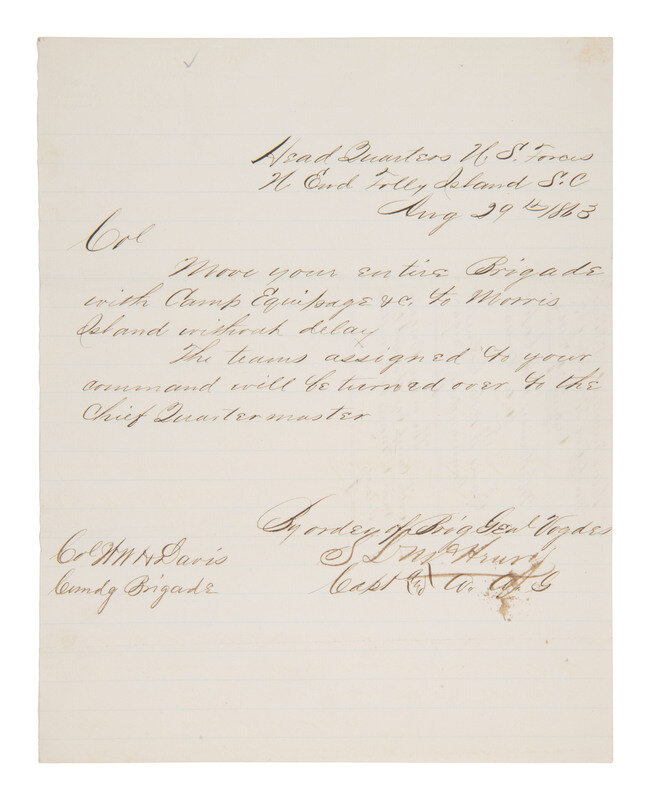 Head Quarters U. S. Forces
N End Folly Island S.C
Aug 29th 1863
Col
Move your entire Brigade
with Camp Equipage &c, to Morris
Island without delay
The teams assigned to your
command will be turned over to the
Chief Quartermaster
By order of Brig Genl Vogdes
S L McHenry
Capt A. G
Col W W H Davis
Comdg Brigade